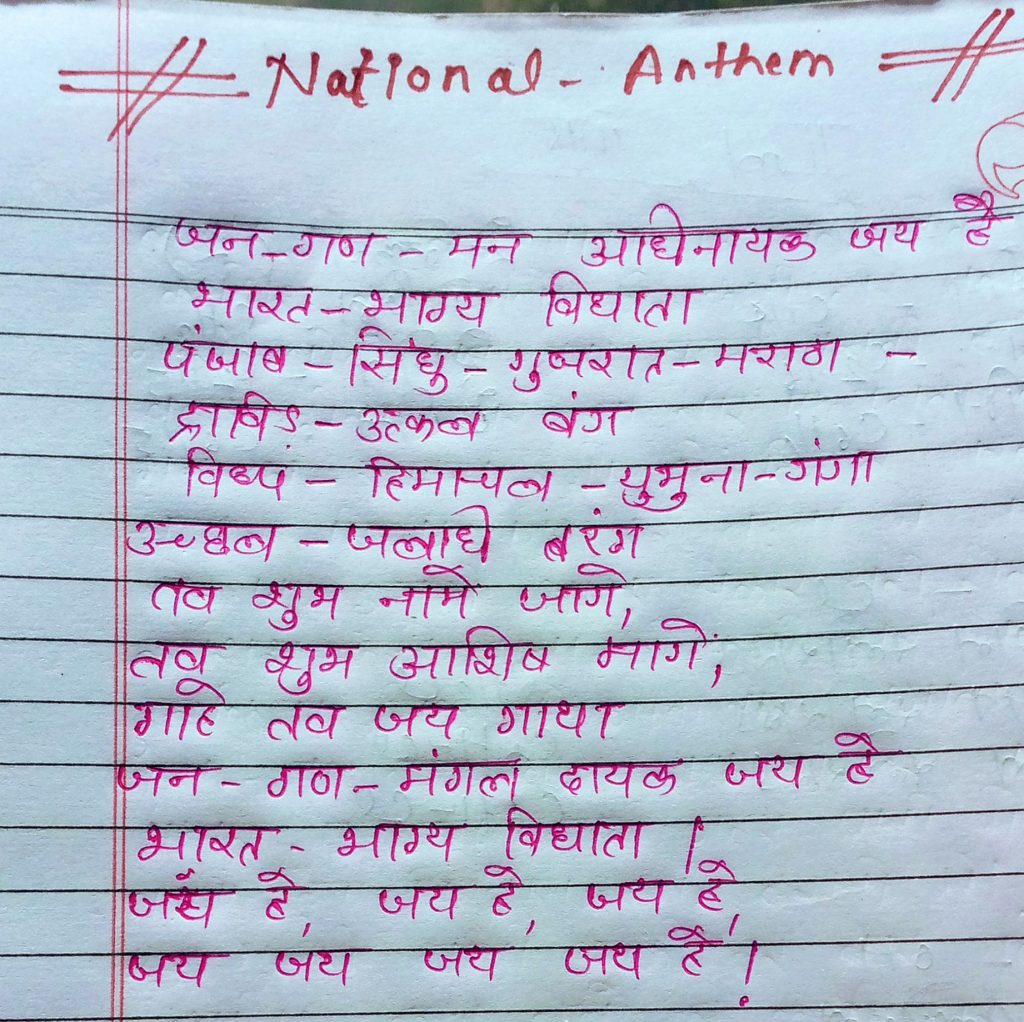 National - Anthem
जन-गण-मन अधिनायक जय है
भारत-भाग्य विधाता
पंजाब-सिंधु-गुजरात-मराठा-
द्राविड़-उत्कल बंग
विध्य-हिमाचल-युमुना-गंगा
उच्छल-जलधि तरंग
तव शुभ नामे जागे,
तव शुभ आशिष मागे,
गाहे तव जय गाथा
जन-गण-मंगल दायक जय है
भारत-भाग्य विधाता।
जय हे, जय हे, जय हे,
जय जय जय जय हे!